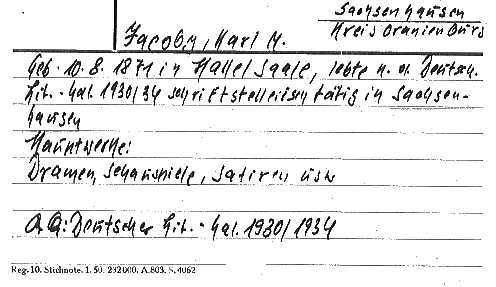 Sachsenhausen
Kreis Oranienburg
Jacoby, Karl M.
Geb. 10. 8. 1871 in Halle/Saale, lebte n. d. Deutsch.
Lit.-Kal. 1930/34 schriftstellerisch tätig in Sachsen-
hausen
Hauptwerke:
Dramen, Schauspiele, Satiren usw
A. G: Deutscher Lit.-Kal. 1930/1934
Reg. 10. Stichnote. 1. 50. 232000. A.803. S. 4062